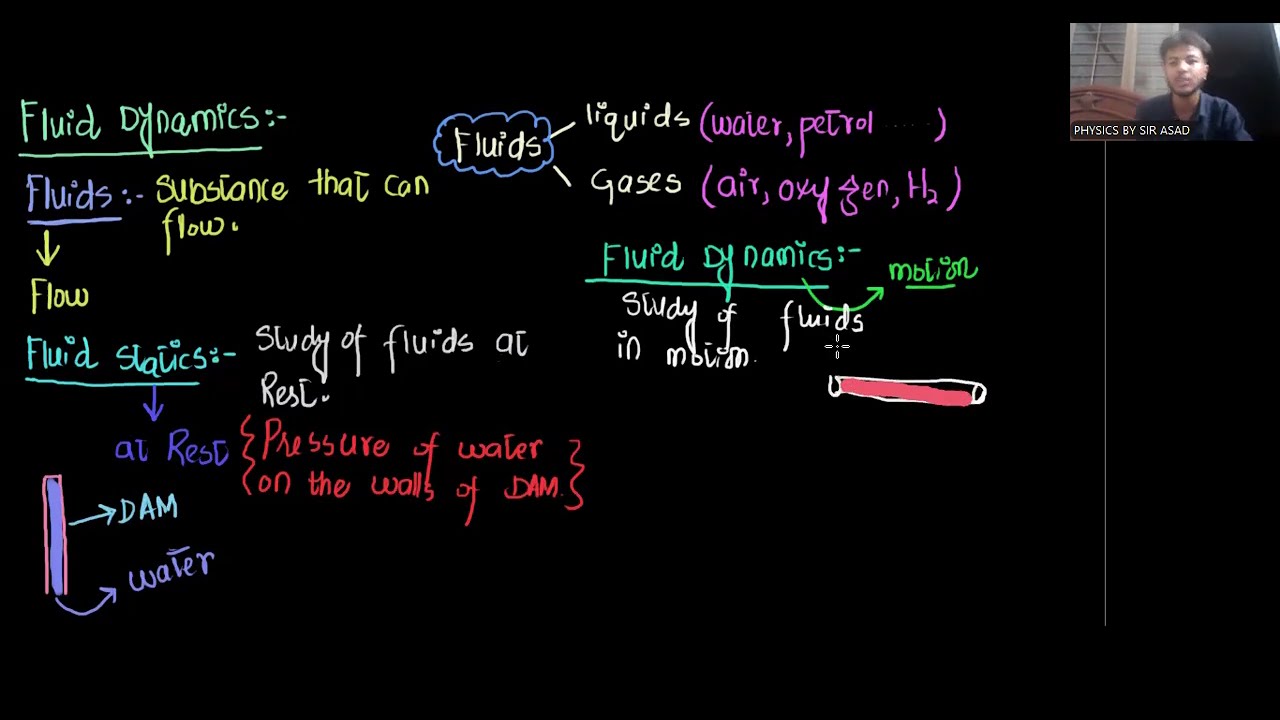 Fluid Dynamics:-
Fluids:- Substance that can
flow.
Flow
Fluid Statics:- Study of fluids at
Rest.
at Rest {Pressure of water
on the walls of DAM.}
DAM
water
Fluids
liquids (water, petrol ......)
Gases (air, oxygen, H₂)
Fluid Dynamics:-
motion
Study of fluids
in motion.
PHYSICS BY SIR ASAD